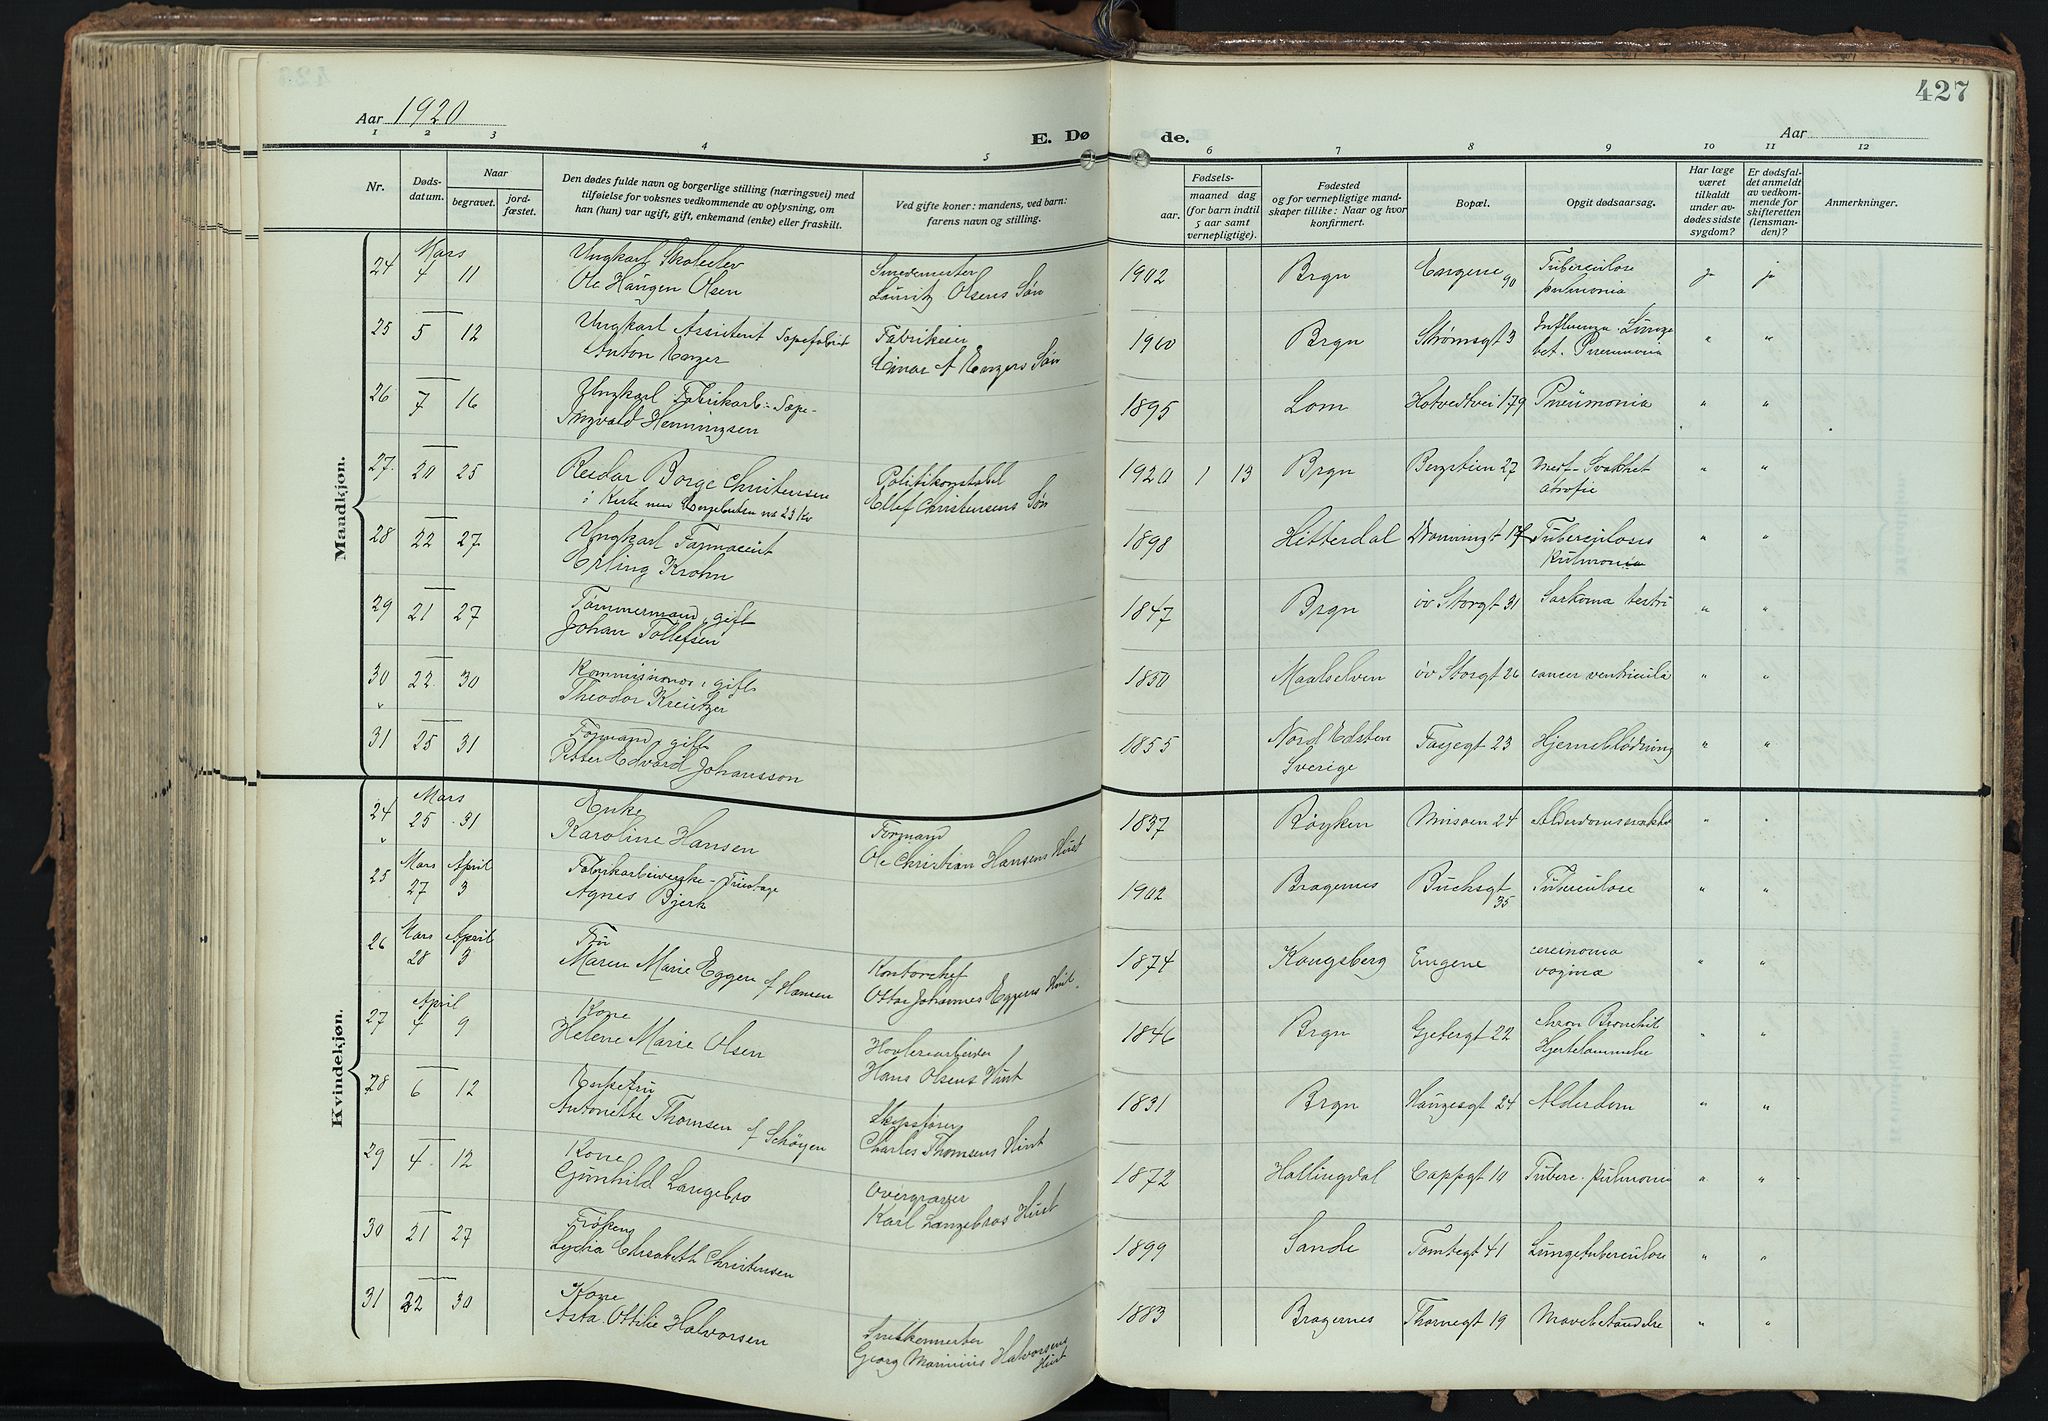 427
Aar 1920
E. Dø de.
Aar
1 2 3 4 5 6 7 8 9 10 11 12
Nr.
Døds-
datum.
Naar
begravet.
jord-
fæstet.
Den dødes fulde navn og borgerlige stilling (næringsvei) med
tilføielse for voksnes vedkommende av oplysning, om
han (hun) var ugift, gift, enkemand (enke) eller fraskilt.
Ved gifte koner: mandens, ved barn:
farens navn og stilling.
Fødsels-
aar.
maaned dag
(for barn indtil
5 aar samt
vernepligtige).
Fødested
og for vernepligtige mand-
skaper tillike: Naar og hvor
konfirmert.
Bopæl.
Opgit dødsaarsag.
Har læge
været
tilkaldt
under av-
dødes sidste
sygdom?
Er dødsfal-
det anmeldt
av vedkom-
mende for
skifteretten
(lensman-
den)?
Anmerkninger.
Mandkjøn.
Mars
24 4 11 Ungkarl Skoleelev
Ole Haugen Olsen
Smedemester
Lauritz Olsens Søn
1902 Brgn Engene 90 Tuberculose
pulmonia j j
25 5 12 Ungkarl Assistent Sæpefabrik
Anton Enger
Einar Engers Søn
1900 Brgn Strømsgt 3 Influenza Lunge
bet. Pneumonia " "
26 7 16 Ungkarl
Ingvald Henningsen
1895 Lom Hotvedtvei 179 Pneumonia " "
27. 20 25 Reidar Borge Christensen
Politikonstabel
Ellef Christensens Søn
1920 1 13 Brgn Bergstien 27 Svakhet
atrofie " "
28 22 27 Ungkarl Farmaceut
Erling Krohn
1898 Hitterdal Tuberculosis
Pulmonia " "
29 21 27 Tømmermand, gift
Johan Tollefsen
1847 Brgn øv Storgt 31 Sarkoma " "
30 22 30 Kommissionær, gift
Theodor Kreutzer
1850 Maalselven øv Storgt 26 cancer ventriculi " "
31 25 31 Formand, gift
Petter Edvard Johansson
1855 Nord Edsten
Sverige
Fayegt 23 Hjerneblødning " "
Kvindekjøn.
Mars
24 25 31 Enke
Karoline Hansen
Formand
Ole Christian Hansens Hust
1837 Røyken 24 Alderdomssvakhet " "
Mars April
25 27 3 Fabrikarbeiderske - Tricotage
Agnes Bjerk
1902 Bragernes Buchsgt
35
Tuberculose " "
Mars April
26 28 3 Fru
Maren Marie Eggen f Hansen
Kontorchef
Ottar Johannes Eggens Hust.
1874 Kongsberg Engene
vagina " "
April
27 4 9 Kone
Helene Marie Olsen
Høvleriarbeider
Hans Olsens Hust
1846 Brgn Gjetergt 22 chron Bronchit
Hjertelammelse " "
28 6 12 Enkefru
Antonette Thomsen f Schøyen
Skipsfører
Charles Thomsens Hust
1831 Brgn Haugesgt 24 Alderdom " "
29 4 12 Kone
Gunhild Langebro
Overgraver
Karl Langebros Hust
1872 Hallingdal Cappsgt 10 Tuberc. pulmonia " "
30 21 27 Frøken
Lydia Elisabeth Christensen
1899 Sande Tomtegt 41 Lungetuberculose " "
31 22 30 Kone
Asta Ottilie Halvorsen
Snekkermester
Georg Marinius Halvorsens
Hust
1883 Bragernes Thornegt 19 Mavebetændelse " "